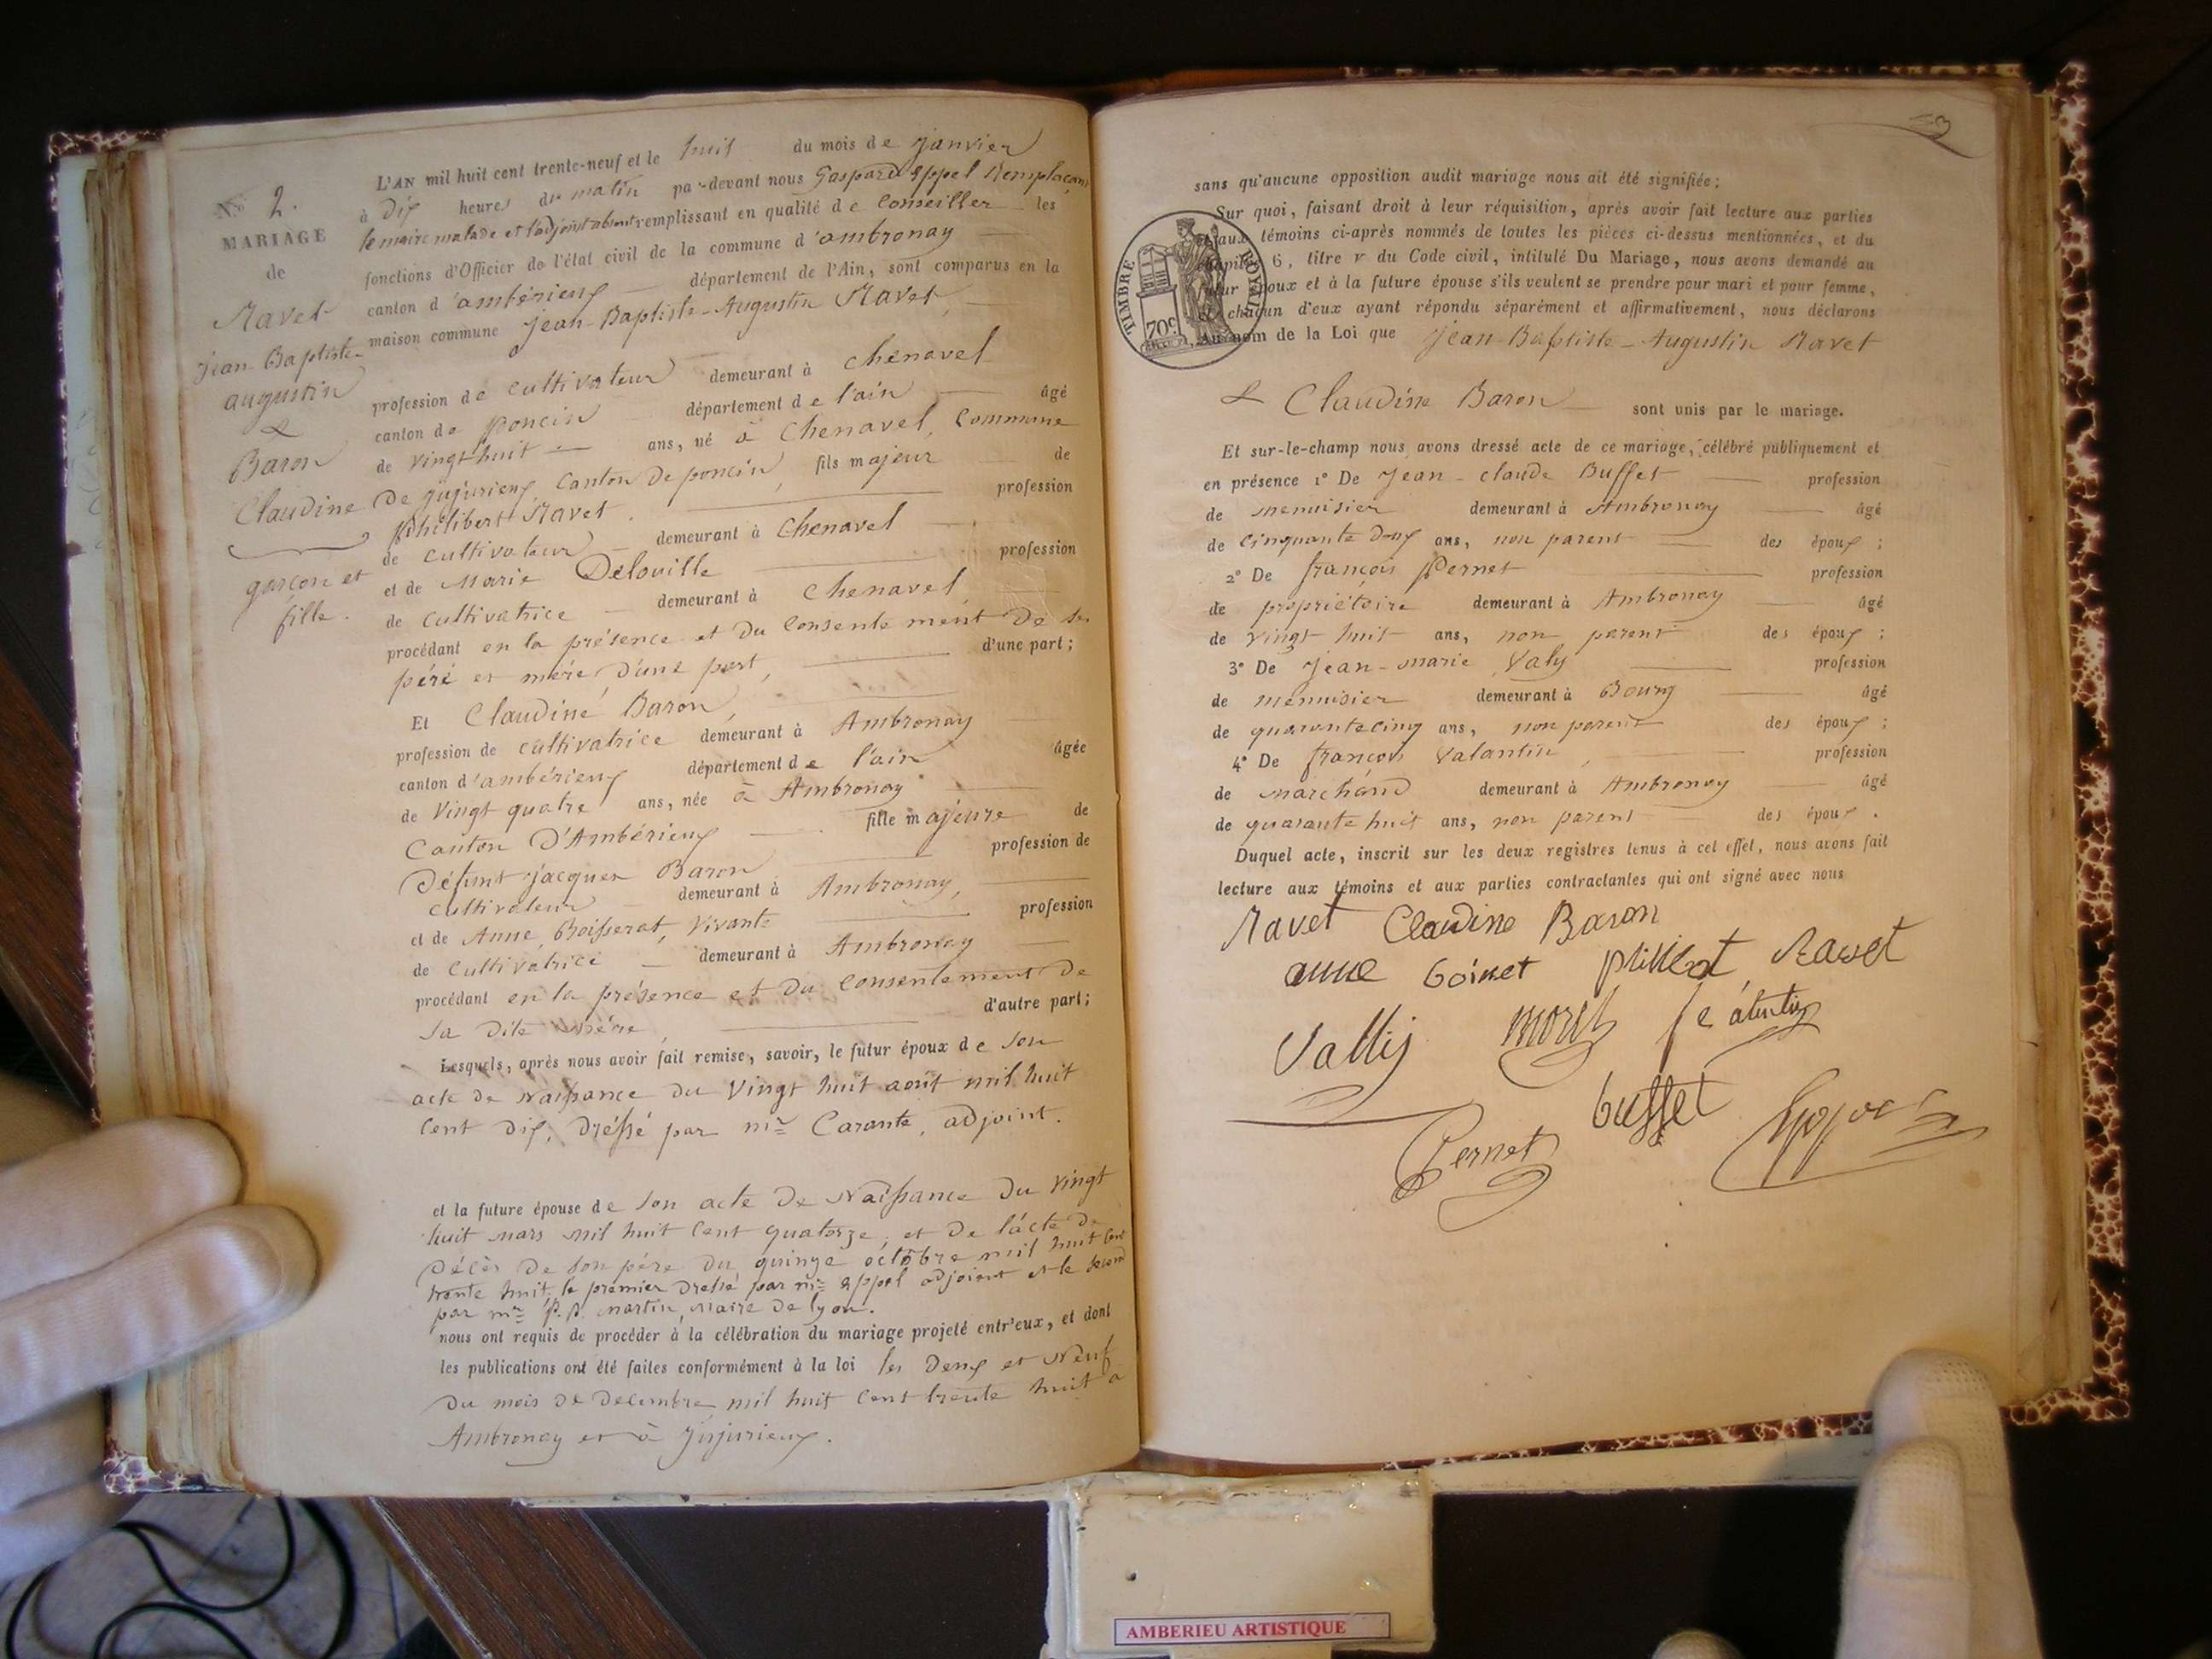 No 2.
MARIAGE
de
Ravet
Jean-Baptiste
augustin
&
Baron
Claudine
garçon et
fille.
L'AN mil huit cent trente-neuf et le huit du mois de Janvier
à dix heures du matin par-devant nous Gaspard appel Remplaçant
le maire malade et l'adjoint absent remplissant en qualité de Conseiller les
fonctions d'Officier de l'état civil de la commune d'ambronay
canton d'ambérieux département de l'Ain, sont comparus en la
maison commune Jean-Baptiste-Augustin Ravet,
profession de cultivateur demeurant à chenavel
canton de poncin département de l'ain âgé
de vingt huit ans, né à Chenavel, Commune
De jujurieux, Canton De poncin, fils majeur de
philibert Ravet profession
de cultivateur demeurant à Chenavel
et de Marie Delouille profession
de cultivatrice demeurant à Chenavel,
procédant en la présence et du Consentement De ses
péré et mére, D'une part, d'une part;
Et Claudine Baron,
profession de cultivatrice demeurant à Ambronay
canton d'ambérieux département de l'ain âgée
de Vingt quatre ans, née à Ambronay
Canton D'Ambérieux fille majeure de
Défunt jacques Baron profession de
cultivateur demeurant à Ambronay,
et de Anne, Boisserat, Vivante profession
de Cultivatrice demeurant à Ambronay
procédant en la présence et du Consentement De
Sa Dite Mére, d'autre part;
Lesquels, après nous avoir fait remise, savoir, le futur époux de Son
acte de Naissance du Vingt huit aout mil huit
Cent Dix, Dréssé par mr Carante, adjoint.
et la future épouse de Son acte De Naissance Du Vingt
huit mars mil huit Cent quatorze, et De l'acte De
Décès De Son père Du quinze octobre mil huit Cent
trente huit, le premier Dressé par mr appel adjoint et le Second
par mr P. Martin, Maire De lyon.
nous ont requis de procéder à la célébration du mariage projeté entr'eux, et dont
les publications ont été faites conformément à la loi les Deux et Neuf
Du mois De Decembre mil huit Cent trente huit à
Ambronay et à Jujurieux.
sans qu'aucune opposition audit mariage nous ait été signifiée;
Sur quoi, faisant droit à leur réquisition, après avoir fait lecture aux parties
et aux témoins ci-après nommés de toutes les pièces ci-dessus mentionnées, et du
chapitre 6, titre V du Code civil, intitulé Du Mariage, nous avons demandé au
futur époux et à la future épouse s'ils veulent se prendre pour mari et pour femme,
et chacun d'eux ayant répondu séparément et affirmativement, nous déclarons
, Au nom de la Loi que Jean-Baptiste-Augustin Ravet
& Claudine Baron sont unis par le mariage.
TIMBRE ROYAL
70c
Et sur-le-champ nous avons dressé acte de ce mariage, célébré publiquement et
en présence 1° De Jean-claude Buffet profession
de menuisier demeurant à Ambronay âgé
de Cinquante Doux ans, non parent des époux;
2° De françois Pernet profession
de propriétaire demeurant à Ambronay âgé
de vingt huit ans, non parent des époux;
3° De Jean-marie Valy profession
de menuisier demeurant à Bourg âgé
de quarante cinq ans, non parent des époux;
4° De françois Valantin, profession
de marchand demeurant à Ambronay âgé
de quarante huit ans, non parent des époux.
Duquel acte, inscrit sur les deux registres tenus à cet effet, nous avons fait
lecture aux témoins et aux parties contractantes qui ont signé avec nous
Ravet Claudine Baron
anne Ravet
Vallij
buffet
Pernet
AMBERIEU ARTISTIQUE